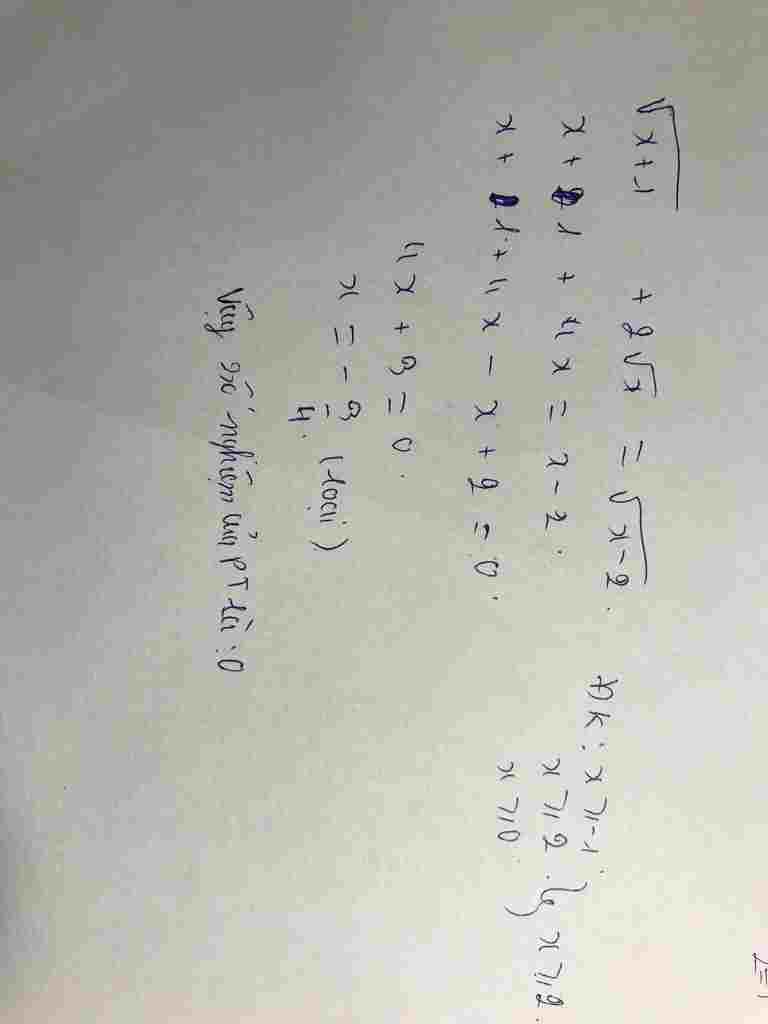 √(x+1) + 2√x = √(x-2). ĐK: x ≥ -1.
x + 1 + 4x = x - 2. x ≥ 2. } x ≥ 2.
x + 1 + 4x - x + 2 = 0. x ≥ 0
4x + 3 = 0.
x = -3/4. (loại)
Vậy số nghiệm của PT là: 0